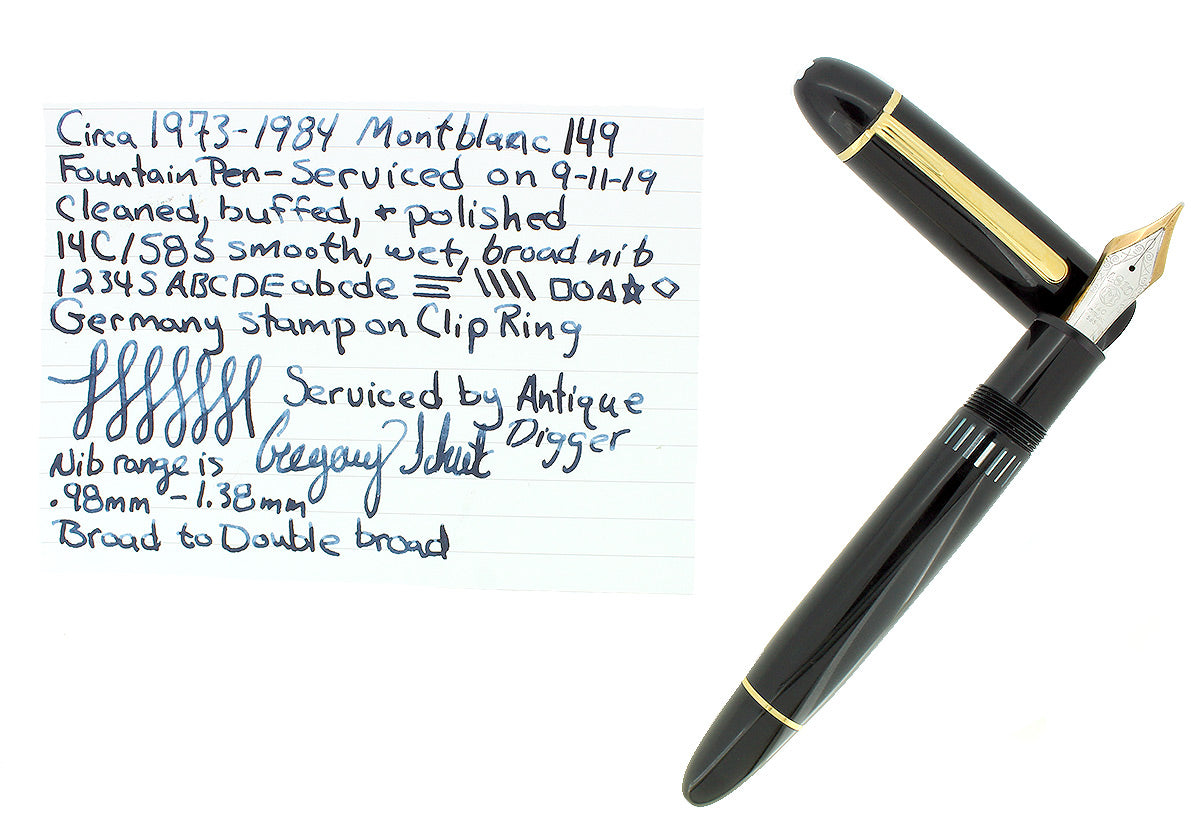 Circa 1973-1984 Montblanc 149
Fountain Pen - Serviced on 9-11-19
Cleaned, buffed, + polished
14C/585 smooth, wet, broad nib
12345 ABCDE abcde
Germany stamp on Clip Ring
Serviced by Antique
Digger
Gregory
Nib range is
.98mm - 1.38mm
Broad to Double broad